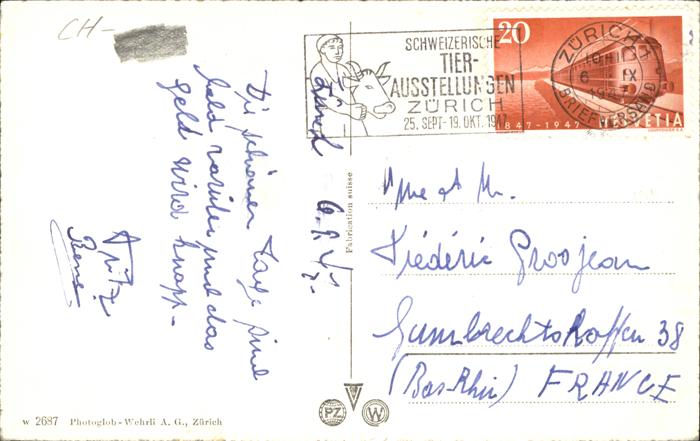 CH-
SCHWEIZERISCHE
TIER-
AUSSTELLUNGEN
ZÜRICH
25. SEPT-19. OKT. 1947
20
1847-1947 HELVETIA
ZÜRICH
6 IX
1947
BRIEFVERSAND
Zürich 6.9.47.
Die schönen Tage sind
bald vorüber und das
Geld wird knapp-
Fritz
Fabrication suisse
Mme et Mr.
Frédéric Groojean
Gumbrechtshoffen 38
(Bas-Rhin) FRANCE
PZ W
w 2687 Photoglob-Wehrli A. G., Zürich